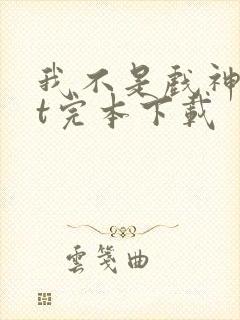 我不是戏神
t完本下载
雲箋曲